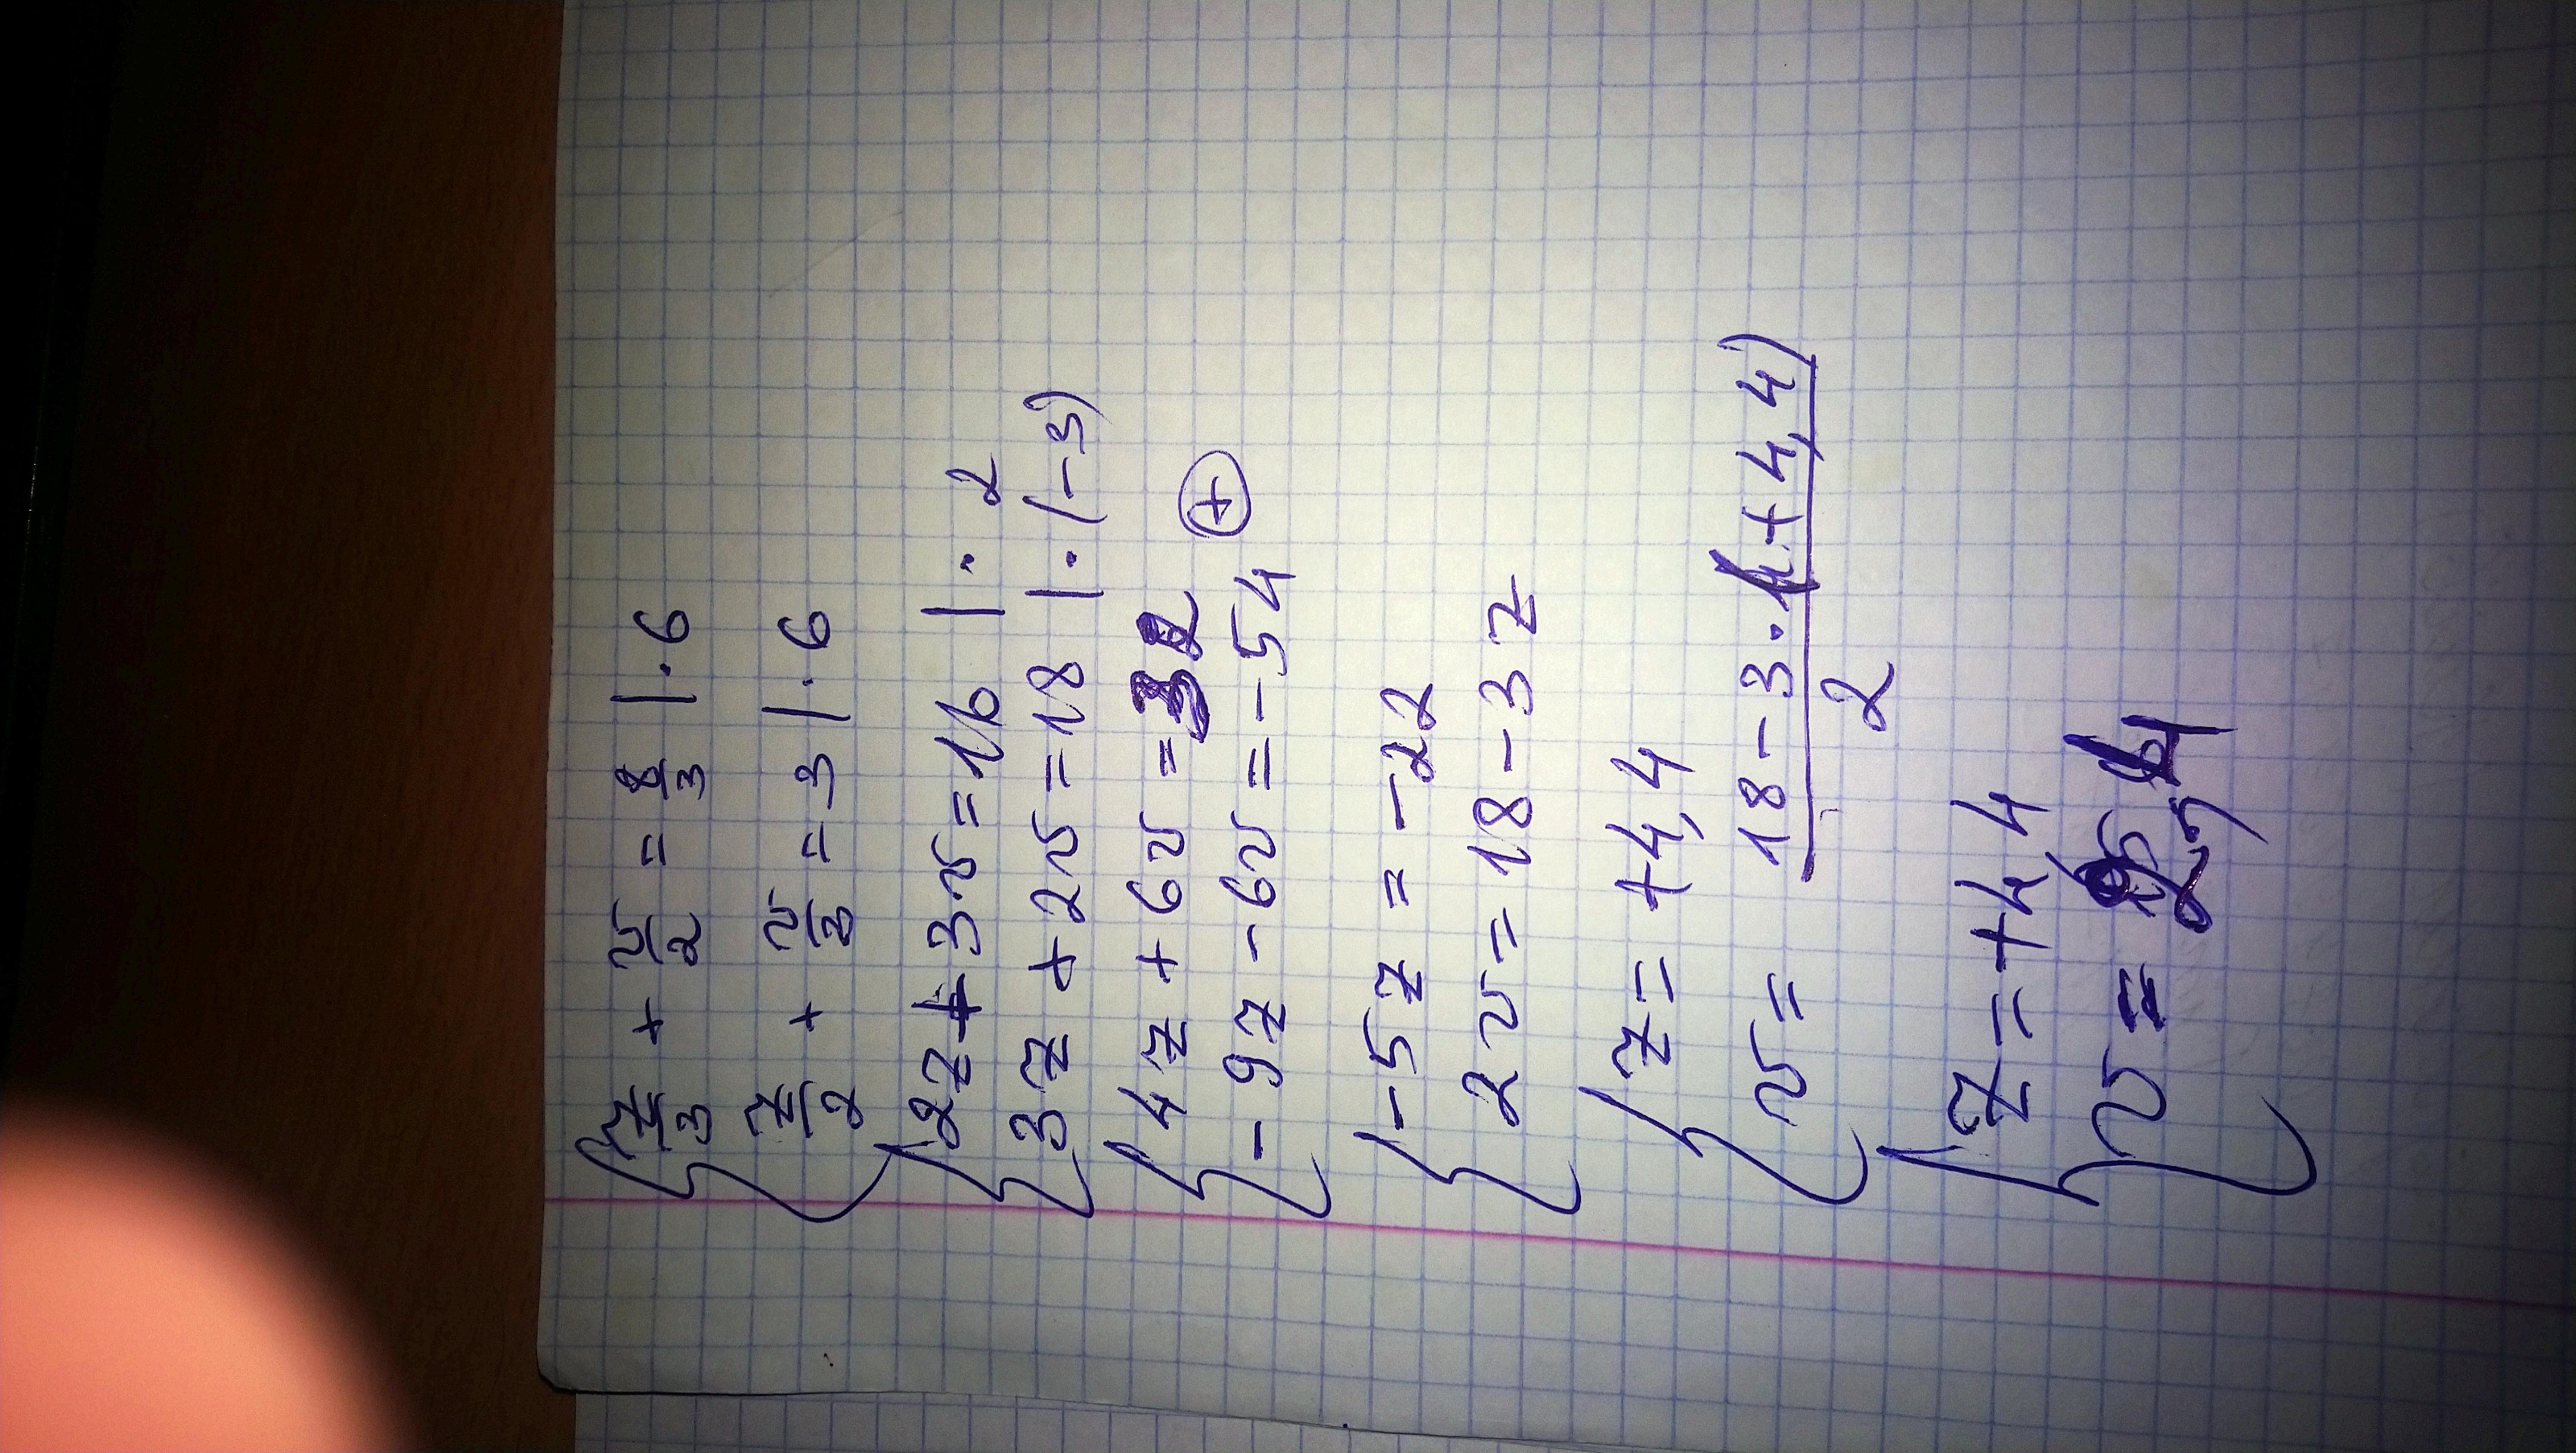 z/3 + v/2 = 8/3 |·6
z/2 + v/3 = 3 |·6
2z + 3·v = 16 |·2
3z + 2v = 18 |·(-3)
4z + 6v = 32
-9z - 6v = -54 (+)
-5z = -22
2v = 18 - 3z
z = +4,4
v = 18 - 3·(+4,4)
2
z = +4,4
v = 2,4